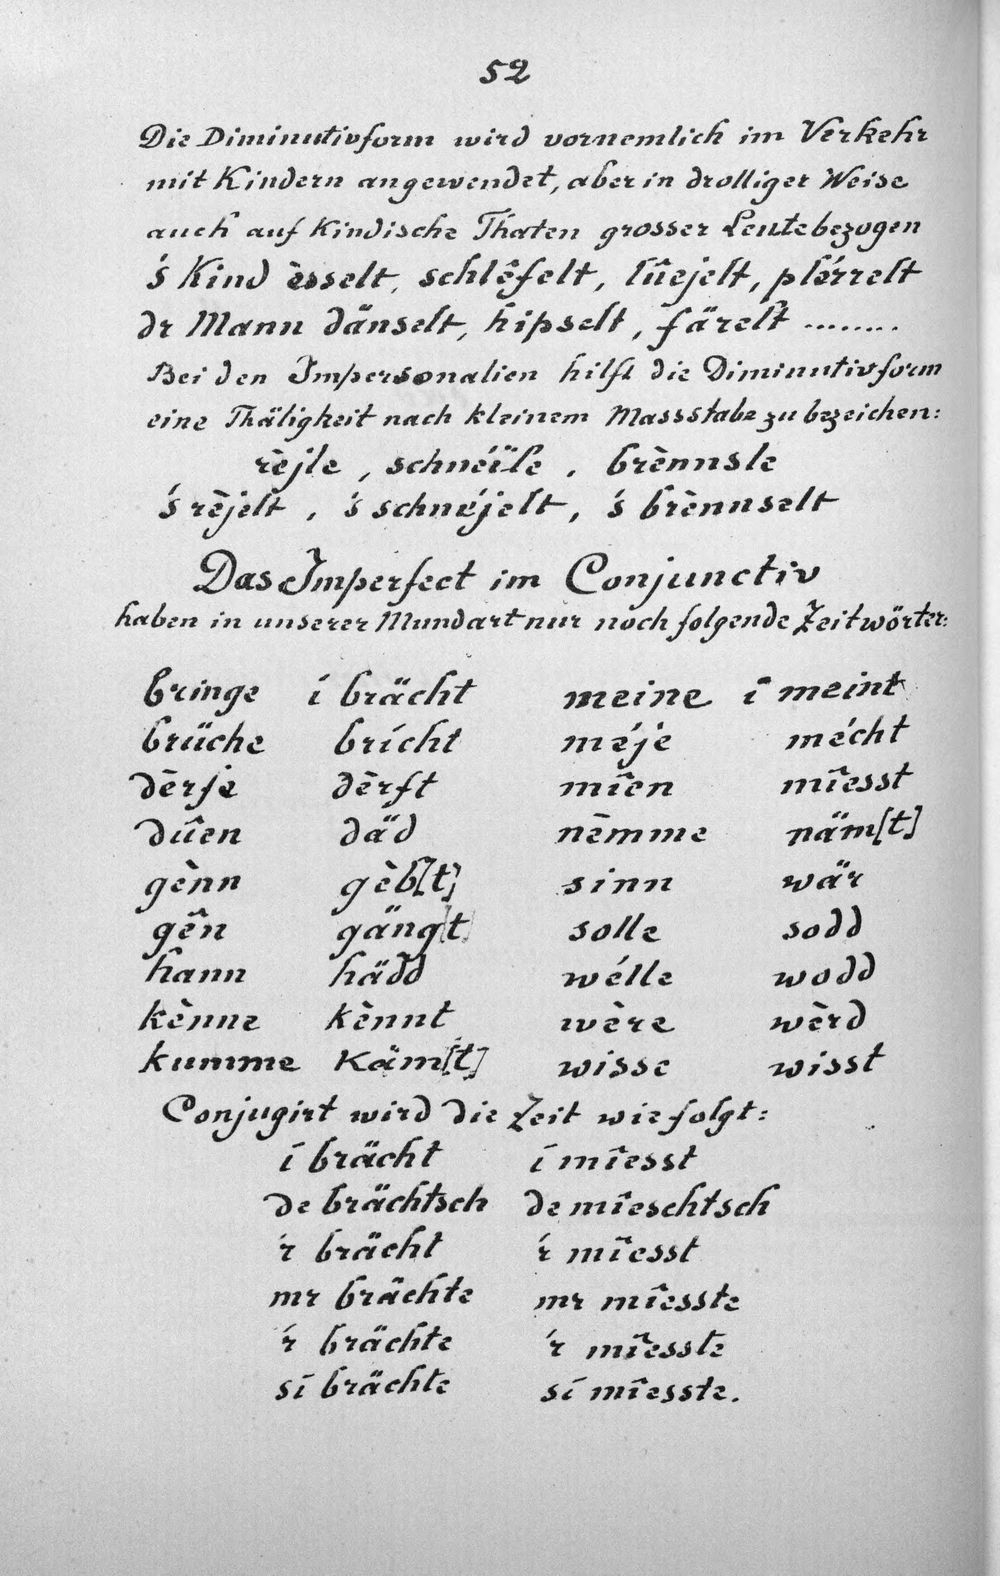 52
Die Diminutivform wird vornemlich im Verkehr
mit Kindern angewendet, aber in drolliger Weise
auch auf Kindische Thaten grosser Leute bezogen
's Kind èsselt, schlêfelt, lûejelt, plérrelt
dr Mann dänselt, hipselt, färelt ........
Bei den Impersonalien hilft die Diminutivform
eine Thätigkeit nach kleinem Massstabe zu bezeichen:
rèjle, schnéïle, brènnsle
's rèjelt, 's schnéjelt, 's brènnselt
Das Imperfect im Conjunctiv
haben in unserer Mundart nur noch folgende Zeitwörter:
bringe i brächt meine i meint
brüche bricht méje mécht
dèrfe dèrft mîen mîesst
dûen däd nèmme näm[t]
gènn gèb[t] sinn wär
gên gäng[t] solle sodd
hann hädd wélle wodd
kènne kènnt wère wèrd
kumme käm[t] wisse wisst
Conjugirt wird die Zeit wie folgt:
i brächt i mîesst
de brächtsch de mîeschtsch
'r brächt 'r mîesst
mr brächte mr mîesste
'r brächte 'r mîesste
si brächte si mîesste.